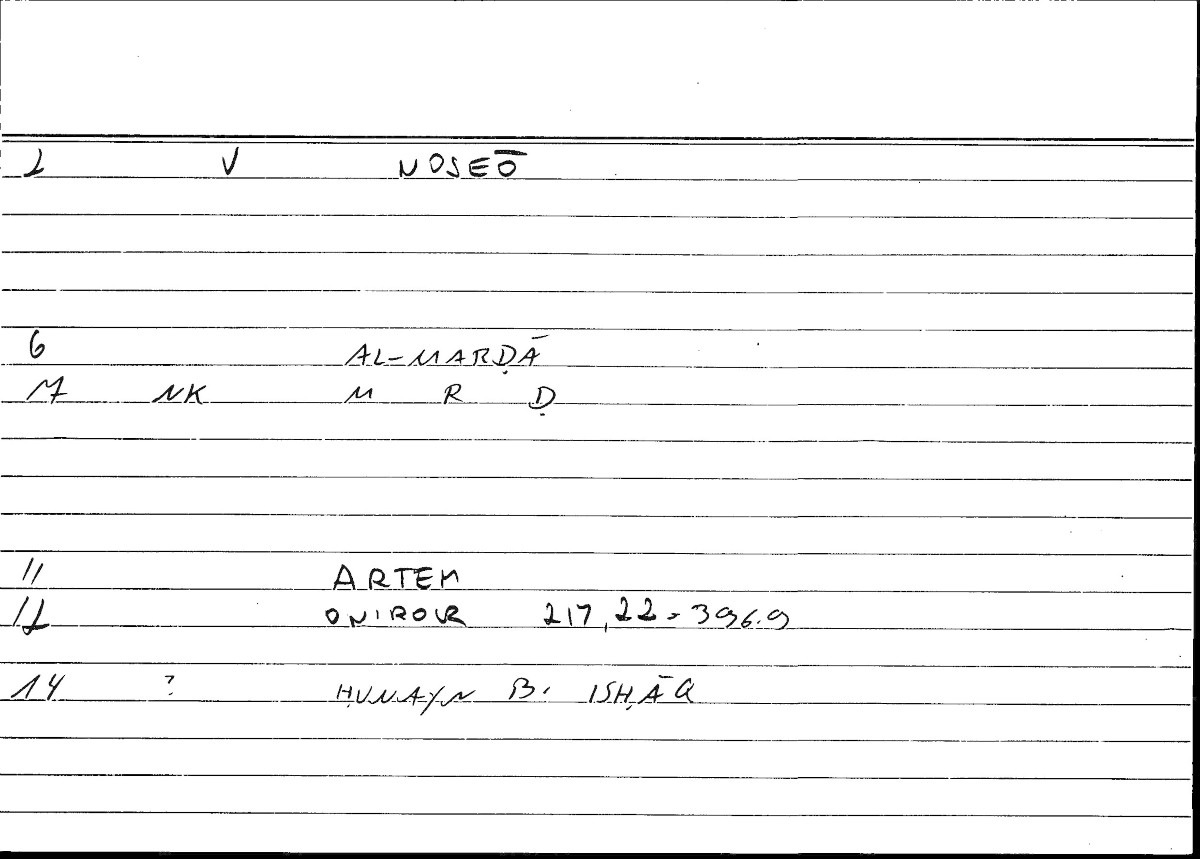 2 V NOSEŌ
6 AL-MARḌĀ
7 NK M R Ḍ
11 ARTEM
12 ONIROCR 217,22 = 396.9
14 ? ḤUNAYN B. ISḤĀQ